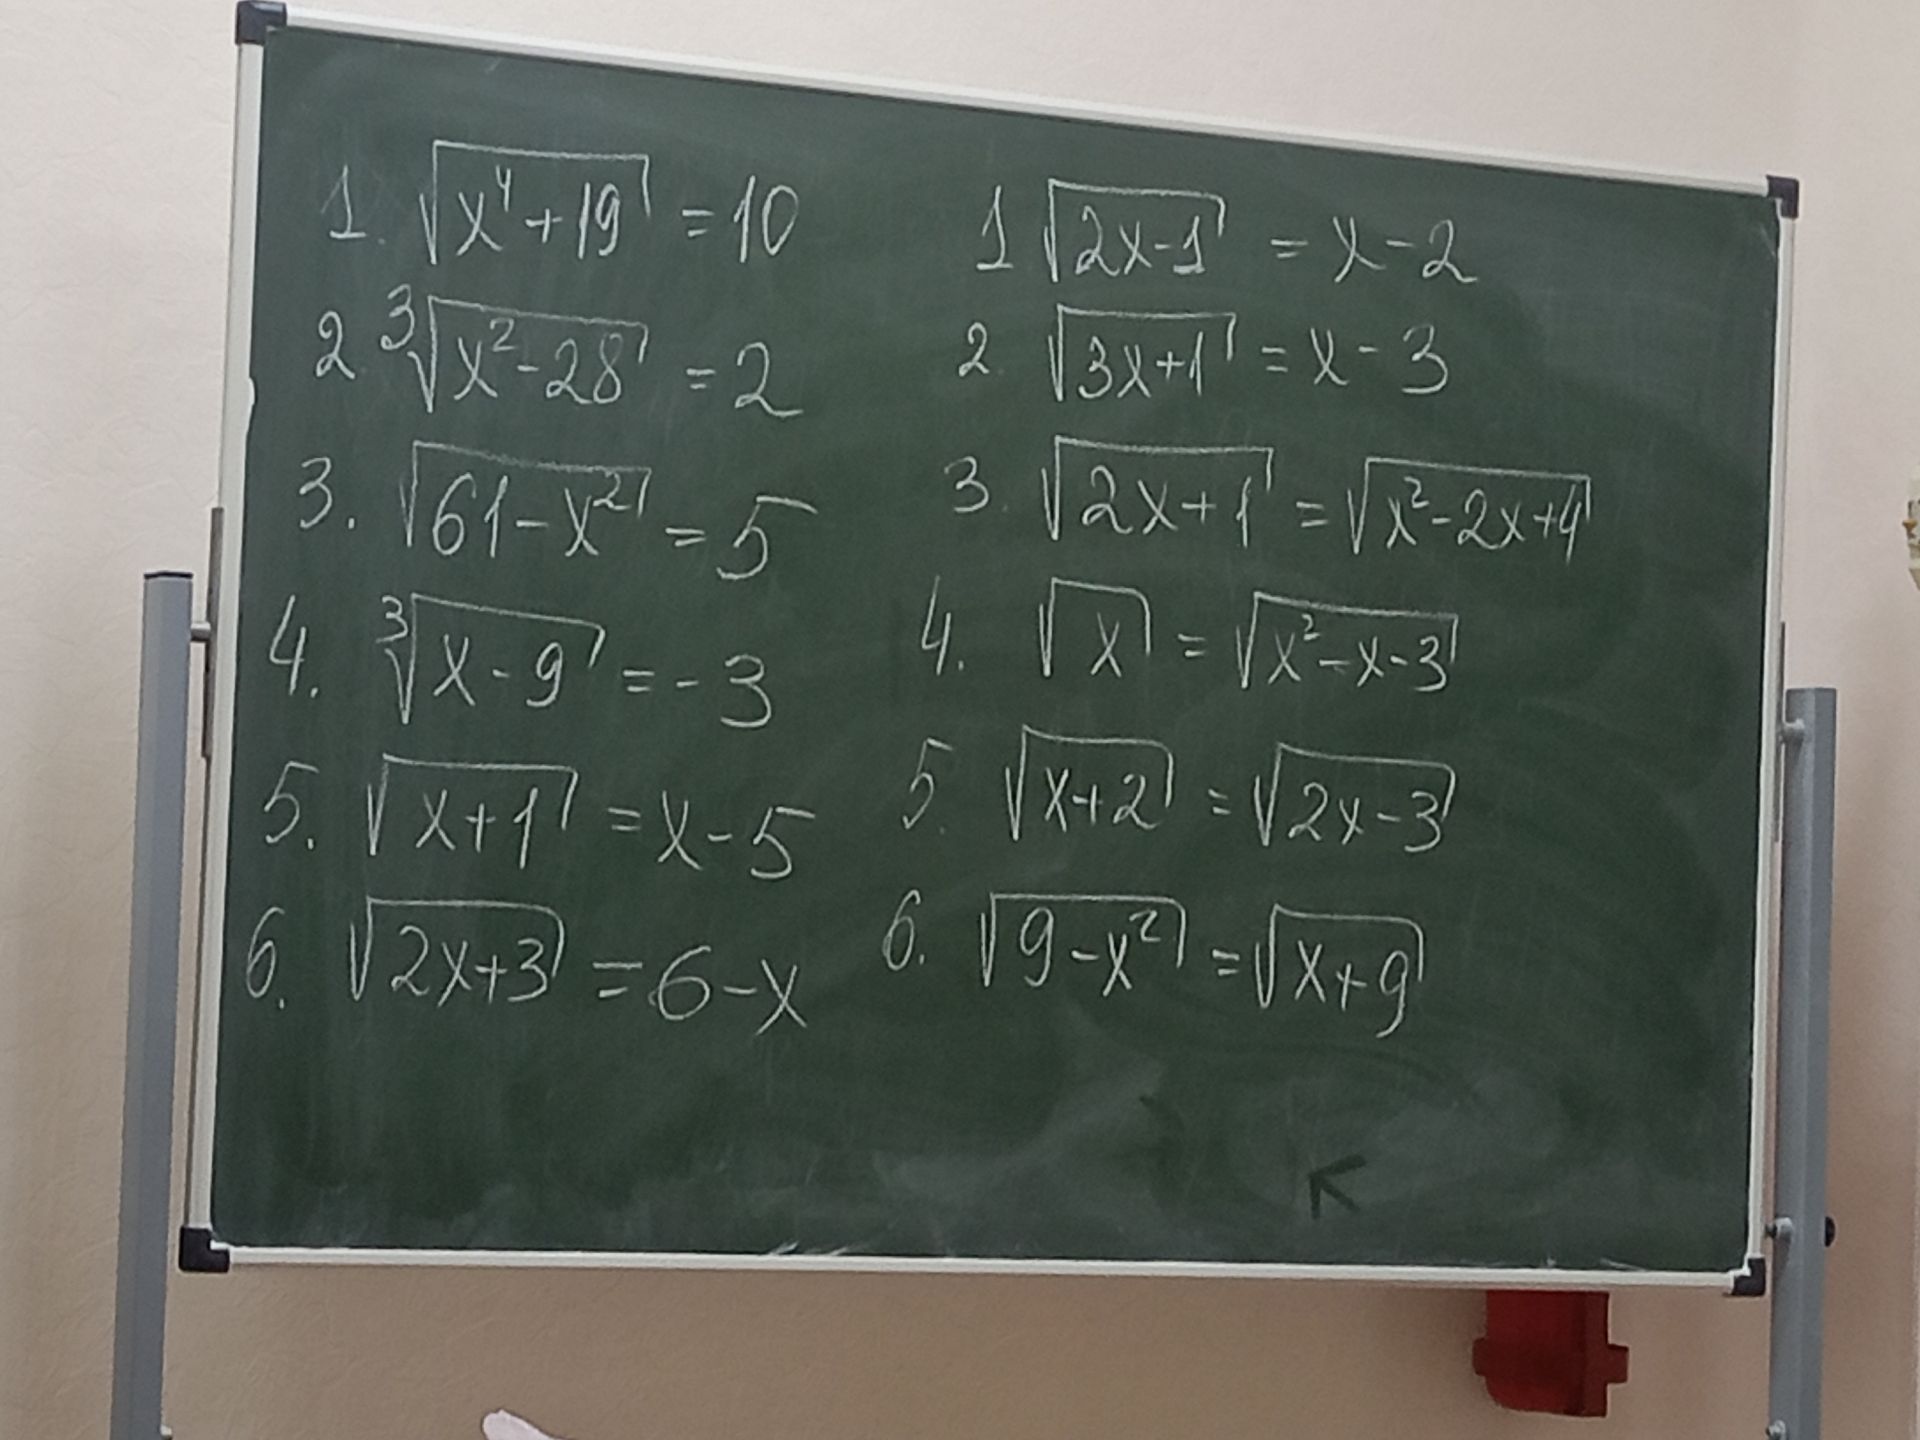 1. √(x⁴+19) = 10
2. ³√(x²-28) = 2
3. √(61-x²) = 5
4. ³√(x-9) = -3
5. √(x+1) = x-5
6. √(2x+3) = 6-x
1 √(2x-1) = x-2
2. √(3x+1) = x-3
3. √(2x+1) = √(x²-2x+4)
4. √x = √(x²-x-3)
5. √(x+2) = √(2x-3)
6. √(9-x²) = √(x+9)